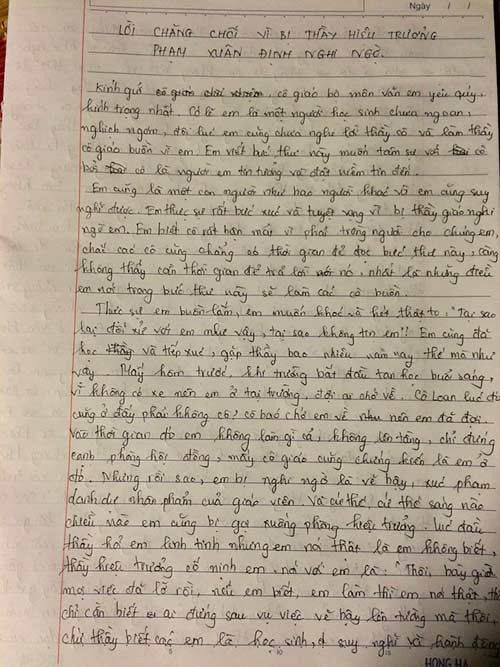 Ngày / /
LỜI CHĂNG CHỐI VÌ BỊ THẦY HIỆU TRƯỞNG
PHẠM XUÂN ĐỊNH NGHI NGỜ.
Kính quí cô giáo chủ nhiệm, cô giáo bộ môn văn em yêu quý,
kính trọng nhất. Có lẽ em là một người học sinh chưa ngoan,
nghịch ngợm, đôi lúc em cũng chưa nghe lời thầy cô và làm thầy
cô giáo buồn vì em. Em viết bức thư này muốn tâm sự với cô
bởi cô là người em tin tưởng và đặt niềm tin đến.
Em cũng là một con người như bao người khác và em cũng suy
nghĩ được. Em thực sự rất bức xúc và tuyệt vọng vì bị thầy giáo nghi
ngờ em. Em biết cô rất bận mải vì phải trông người cho chúng em,
chắc các cô cũng chẳng có thời gian để đọc bức thư này, càng
không thấy cần thời gian để trả lời nó, nhất là những điều
em nói trong bức thư này sẽ làm các cô buồn.
Thực sự em buồn lắm, em muốn khóc và hét thật to: "Tại sao
lại đối xử với em như vậy, tại sao không tin em"! Em cũng đã
học và tiếp xúc, gặp thầy bao nhiêu năm nay thế mà như
vậy. Mấy hôm trước, khi trường bắt đầu tan học buổi sáng,
vì không có xe nên em ở tại trường, đợi ai chở về. Cô Loan lúc đó
cũng ở đấy phải không cô? cô bảo chở em về nhưng em đã đợi.
vào thời gian đó em không làm gì cả, không lên tầng, chỉ đứng
cạnh phòng hội đồng, mấy cô giáo cũng chứng kiến là em ở
đó. Nhưng rồi sao, em bị nghi ngờ là vẽ bậy, xúc phạm
danh dự nhân phẩm của giáo viên. Và cứ thế, cứ thế sáng nào
chiều nào em cũng bị gọi xuống phòng hiệu trưởng. Lúc đầu
thầy hỏi em linh tinh nhưng em nói thật là em không biết,
thầy hiệu trưởng cố mình em nói với em là: "Thôi, bây giờ
mọi việc đã lỡ rồi, nếu em biết, em làm thì em nói thật,
chỉ cần biết ai đứng sau vụ việc vẽ bậy lên tường mà thôi,
chứ thầy biết các em là học sinh, suy nghĩ và hành động
HONG HA